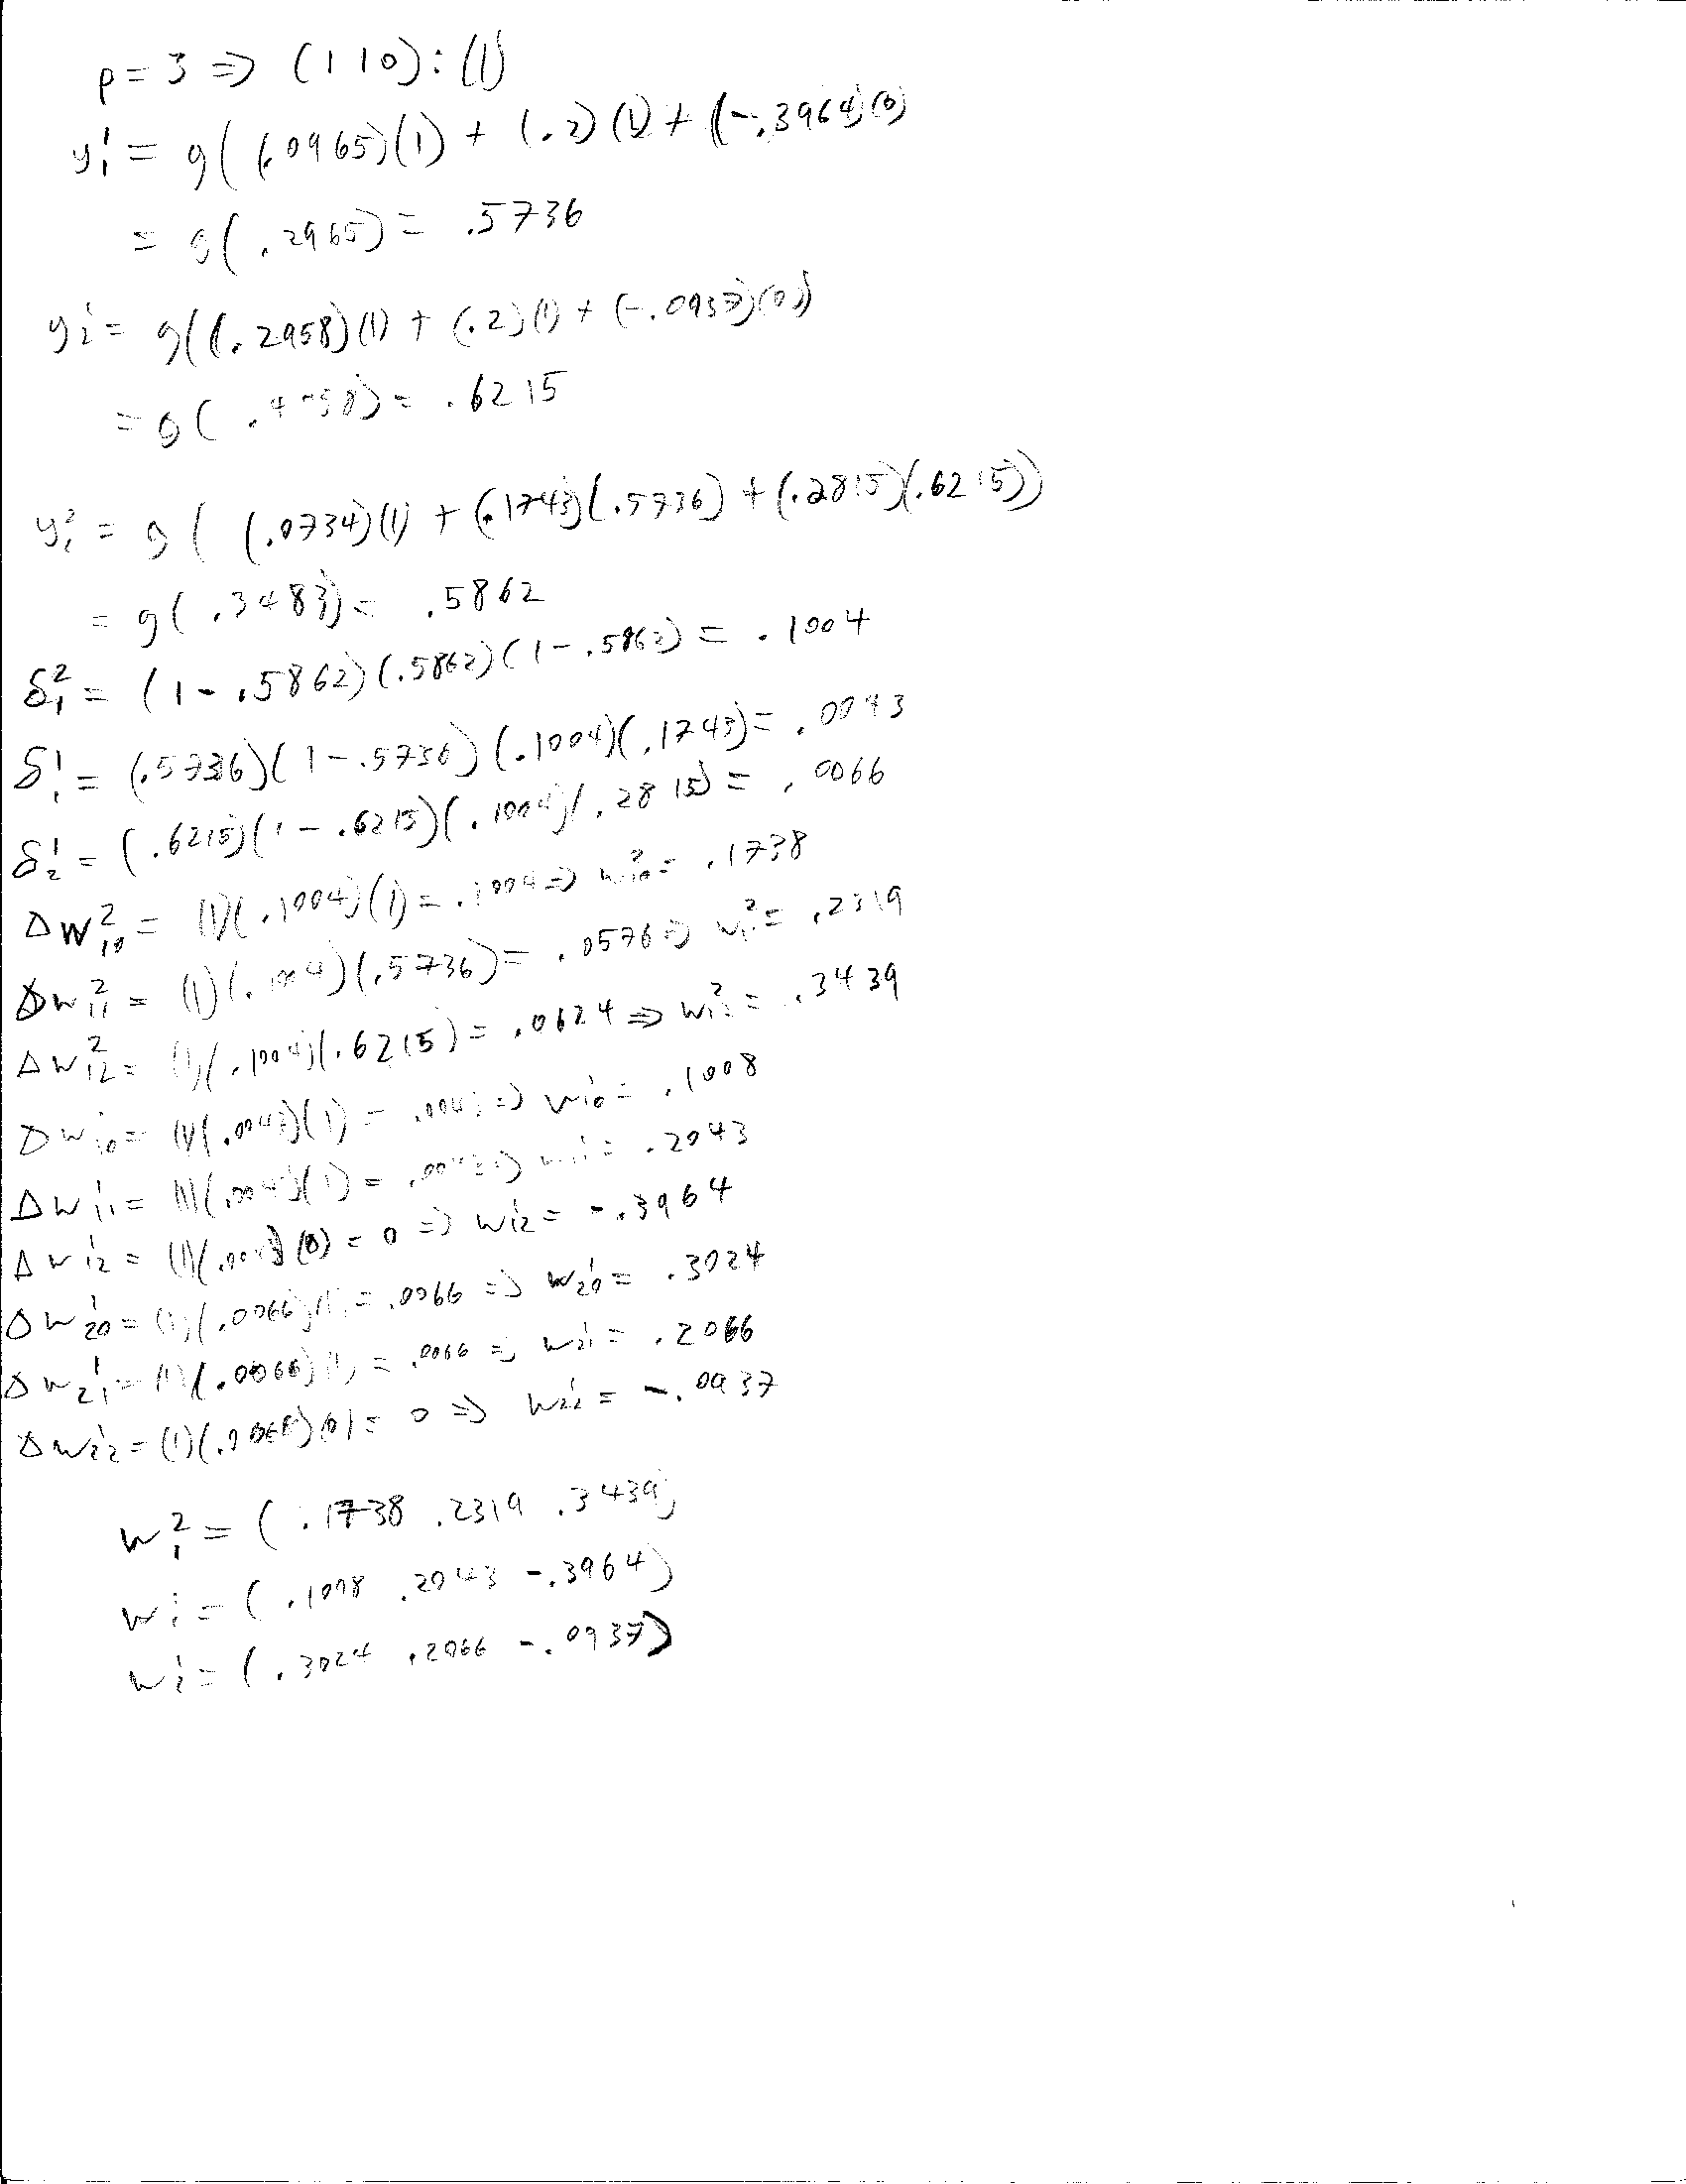 p = 3 ⇒ (1 1 0) : (1)
y₁¹ = g( (.0965)(1) + (.2)(1) + (-.3964)(0)
= g( .2965) = .5736
y₂¹ = g((.2958)(1) + (.2)(1) + (-.0937)(0))
= g( .4958) = .6215
y₁² = g( (.0734)(1) + (.1743)(.5736) + (.2815)(.6215))
= g( .3483) = .5862
δ₁² = (1 - .5862)(.5862)(1 - .5862) = .1004
δ₁¹ = (.5736)(1 - .5736)(.1004)(.1743) = .0043
δ₂¹ = (.6215)(1 - .6215)(.1004)(.2815) = .0066
Δw₁₀² = (1)(.1004)(1) = .1004 ⇒ w₁₀² = .1738
Δw₁₁² = (1)(.1004)(.5736) = .0576 ⇒ w₁₁² = .2319
Δw₁₂² = (1)(.1004)(.6215) = .0624 ⇒ w₁₂² = .3439
Δw₁₀¹ = (1)(.0043)(1) = .0043 ⇒ w₁₀¹ = .1008
Δw₁₁¹ = (1)(.0043)(1) = .0043 ⇒ w₁₁¹ = .2043
Δw₁₂¹ = (1)(.0043)(0) = 0 ⇒ w₁₂¹ = -.3964
Δw₂₀¹ = (1)(.0066)(1) = .0066 ⇒ w₂₀¹ = .3024
Δw₂₁¹ = (1)(.0066)(1) = .0066 ⇒ w₂₁¹ = .2066
Δw₂₂¹ = (1)(.0066)(0) = 0 ⇒ w₂₂¹ = -.0937
w₁² = ( .1738 .2319 .3439)
w₁¹ = ( .1008 .2043 -.3964)
w₂¹ = ( .3024 .2066 -.0937)